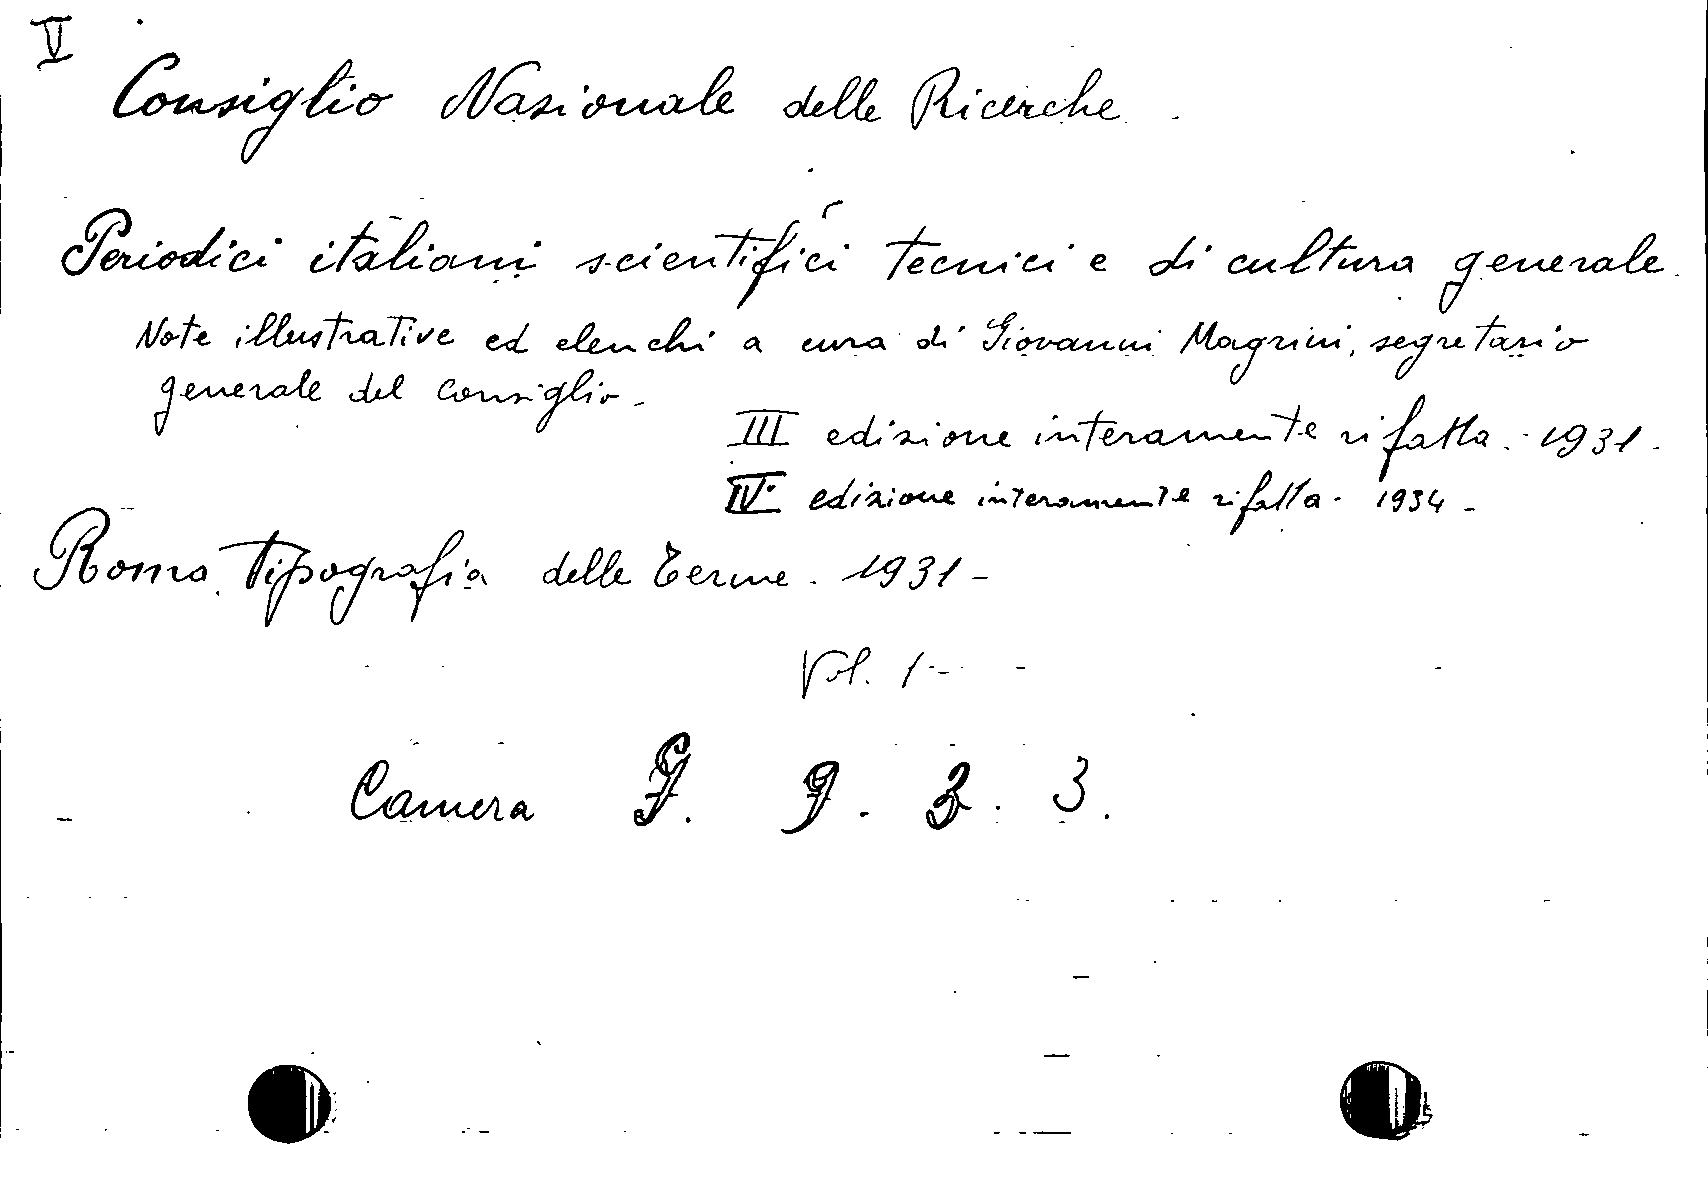 V
Consiglio Nazionale delle Ricerche.
Periodici italiani scientifici tecnici e di cultura generale.
Note illustrative ed elenchi a cura di Giovanni Magrini, segretario
generale del Consiglio.
III edizione interamente rifatta. 1931.
IV. edizione interamente rifatta. 1934.
Roma. Tipografia delle Terme. 1931-
Vol. 1-
Camera 9. 3. 3.